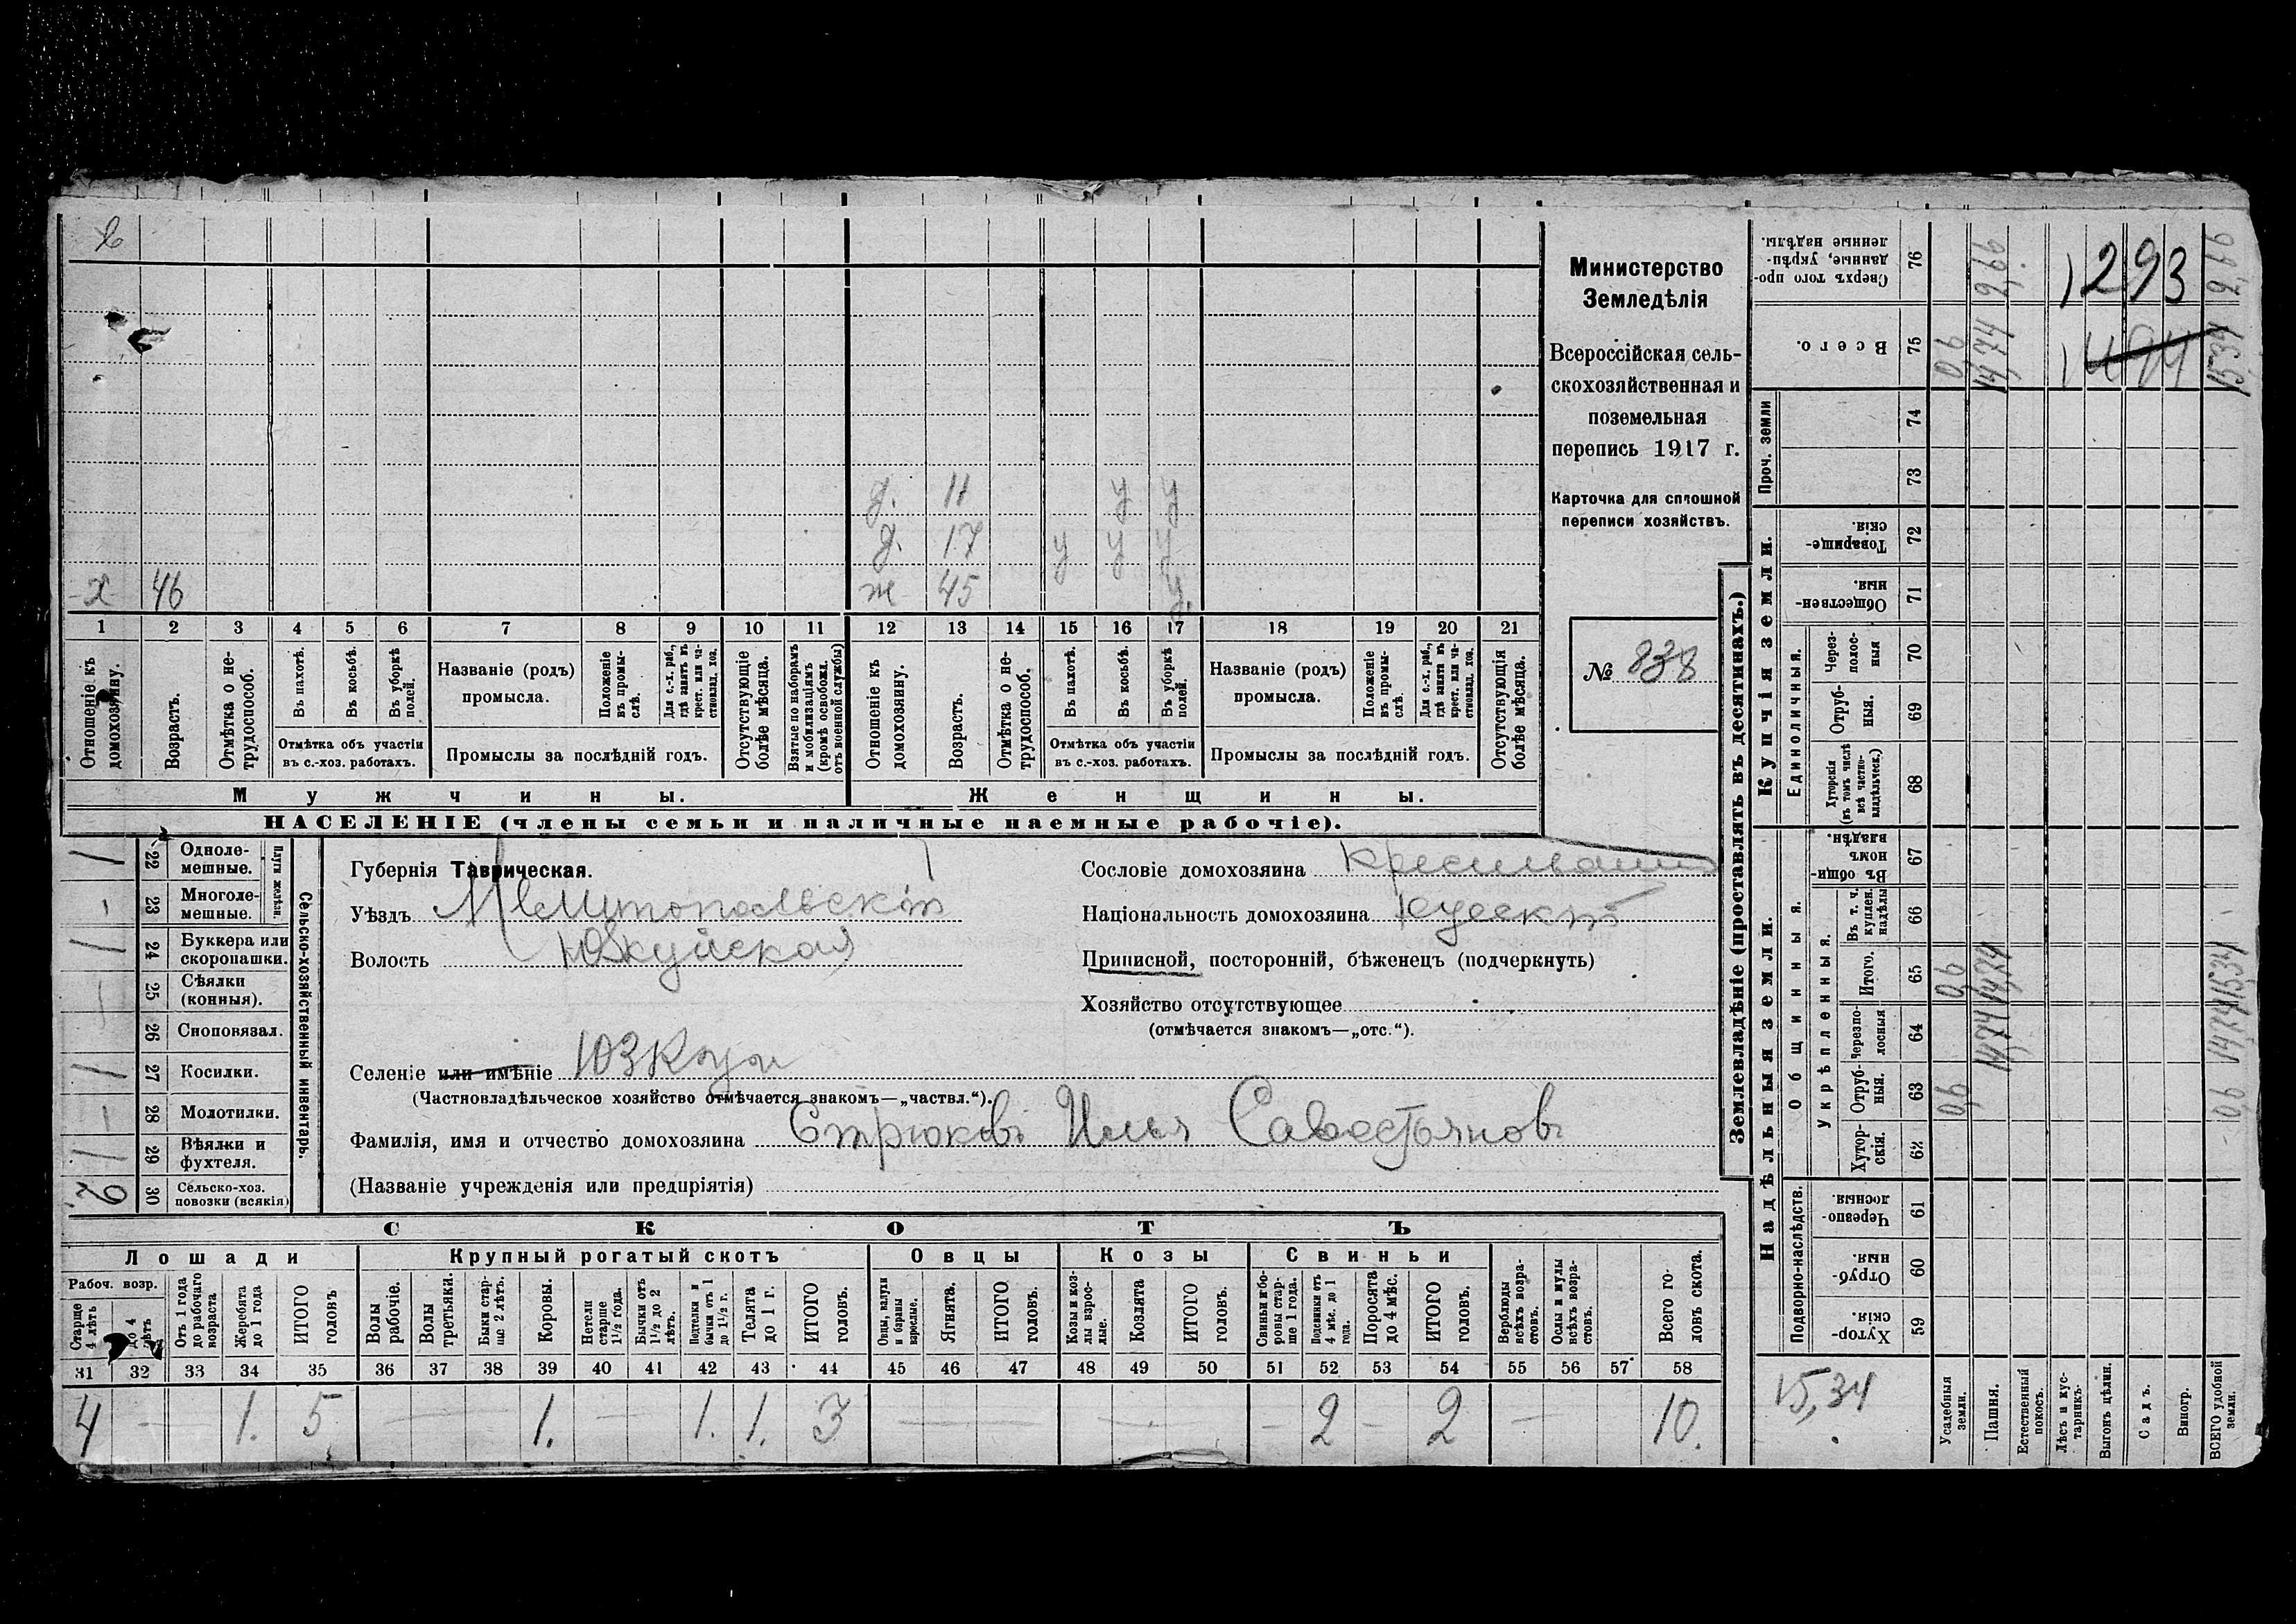 Министерство
Земледѣлія
Всероссійская сель-
скохозяйственная и
поземельная
перепись 1917 г.
Карточка для сплошной
переписи хозяйствъ.
№ 838
д. 11 у у
д. 17 у у у
х 46 ж 45 у.
1 2 3 4 5 6 7 8 9 10 11 12 13 14 15 16 17 18 19 20 21
Отношеніе къ домохозяину.
Возрастъ.
Отмѣтка о не-трудоспособ.
Въ пахотѣ.
Въ косьбѣ.
Въ уборкѣ полей.
Отмѣтка объ участіи
въ с.-хоз. работахъ.
Названіе (родъ)
промысла.
Положеніе въ промы-слѣ.
Для с.-х. раб., гдѣ занятъ въ крест. или ча-стновлад. хоз.
Промыслы за послѣдній годъ.
Отсутствующіе болѣе мѣсяца.
Взятые по наборамъ и мобилизаціямъ (кромѣ освобожд. отъ военной службы)
Отношеніе къ домохозяину.
Возрастъ.
Отмѣтка о не-трудоспособ.
Въ пахотѣ.
Въ косьбѣ.
Въ уборкѣ полей.
Отмѣтка объ участіи
въ с.-хоз. работахъ.
Названіе (родъ)
промысла.
Положеніе въ промы-слѣ.
Для с.-х. раб., гдѣ занята въ крест. или ча-стновлад. хоз.
Промыслы за послѣдній годъ.
Отсутствующія болѣе мѣсяца.
Мужчины. Женщины.
НАСЕЛЕНІЕ (члены семьи и наличные наемные рабочіе).
Сельско-хозяйственный инвентарь.
Плуги желѣзн.
1 22 Однолемешные.
- 23 Многолемешные.
1 24 Буккера или скоропашки.
- 25 Сѣялки (конныя).
26 Сноповязал.
1 27 Косилки.
- 28 Молотилки.
1 29 Вѣялки и фухтеля.
2 30 Сельско-хоз. повозки (всякія)
Губернія Таврическая.
Уѣздъ Мелитопольскій
Волость Юзкуйская
Селеніе или имѣніе Юзкуи
(Частновладѣльческое хозяйство отмѣчается знакомъ—„частвл.“).
Фамилія, имя и отчество домохозяина Стрюковъ Илья Савостьяновъ
(Названіе учрежденія или предпріятія)
Сословіе домохозяина крестьянинъ
Національность домохозяина русскій
Приписной, посторонній, бѣженецъ (подчеркнуть)
Хозяйство отсутствующее
(отмѣчается знакомъ—„отс.“).
СКОТЪ
Лошади Крупный рогатый скотъ Овцы Козы Свиньи
Рабоч. возр.
Старше 4 лѣтъ
до 4 лѣтъ
Отъ 1 года до рабочаго возраста
Жеребята до 1 года
ИТОГО головъ
Волы рабочіе.
Волы третьяки.
Быки стар-ше 2 лѣтъ.
Коровы.
Нетели старше 1½ года.
Бычки отъ 1½ до 2 лѣтъ.
Подтелки и бычки отъ 1 до 1½ г.
Телята до 1 г.
ИТОГО головъ.
Овцы, валухи и бараны взрослые.
Ягнята.
ИТОГО головъ.
Козы и коз-лы взрос-лые.
Козлята
ИТОГО головъ.
Свиньи и бо-ровы стар-ше 1 года.
Подсвинки отъ 4 мѣс. до 1 года.
Поросята до 4 мѣс.
ИТОГО головъ.
Верблюды всѣхъ возра-стовъ.
Ослы и мулы всѣхъ возра-стовъ.
Всего го-ловъ скота.
31 32 33 34 35 36 37 38 39 40 41 42 43 44 45 46 47 48 49 50 51 52 53 54 55 56 57 58
4 - 1. 5. - 1. - 1. 1. 3 - - - 2 - 2 - 10.
Землевладѣніе (проставлять въ десятинахъ.)
Надѣльныя земли. Купчія земли.
Проч. земли
Подворно-наслѣдств.
Общинныя.
Укрѣпленныя.
Единоличныя.
76 Сверхъ того про-данные, укрѣп-ленные надѣлы. 9,66 9,66
75 Всего. 0,6 14,74 15,34
74
73
72 Товарище-скія.
71 Обществен-ныя.
70 Через-полос-ныя
69 Отруб-ныя.
68 Хуторскія (въ томъ числѣ всѣ частно-владѣльческ.)
67 Въ общи-номъ владѣн.
66 Въ т. ч. куплен. надѣлы
65 Итого. 0,6 14,74 15,34
64 Черезпо-лосныя 14,74 14,74
63 Отруб-ныя. 0,6 0,6
62 Хутор-скія.
61 Черезпо-лосныя.
60 Отруб-ныя.
59 Хутор-скія.
1293
1494
15,34
Усадебныя земли.
Пашня.
Естественный покосъ.
Лѣсъ и кус-тарникъ.
Выгонъ цѣлин.
Садъ.
Виногр.
ВСЕГО удобной земли.